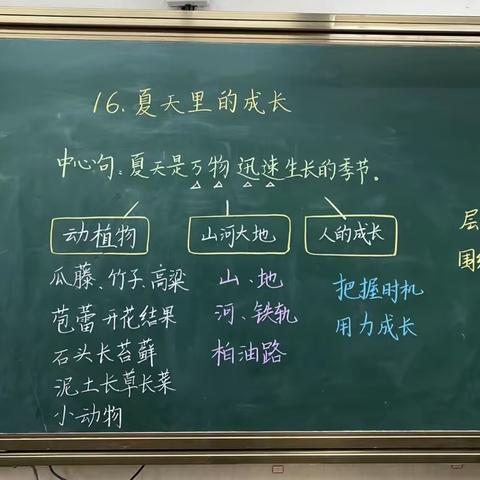 16.夏天里的成长
中心句:夏天是万物迅速生长的季节。
动植物 山河大地 人的成长
瓜藤、竹子、高粱
苞蕾开花结果
石头长苔藓
泥土长草长菜
小动物
山、地
河、铁轨
柏油路
把握时机
用力成长
层
围